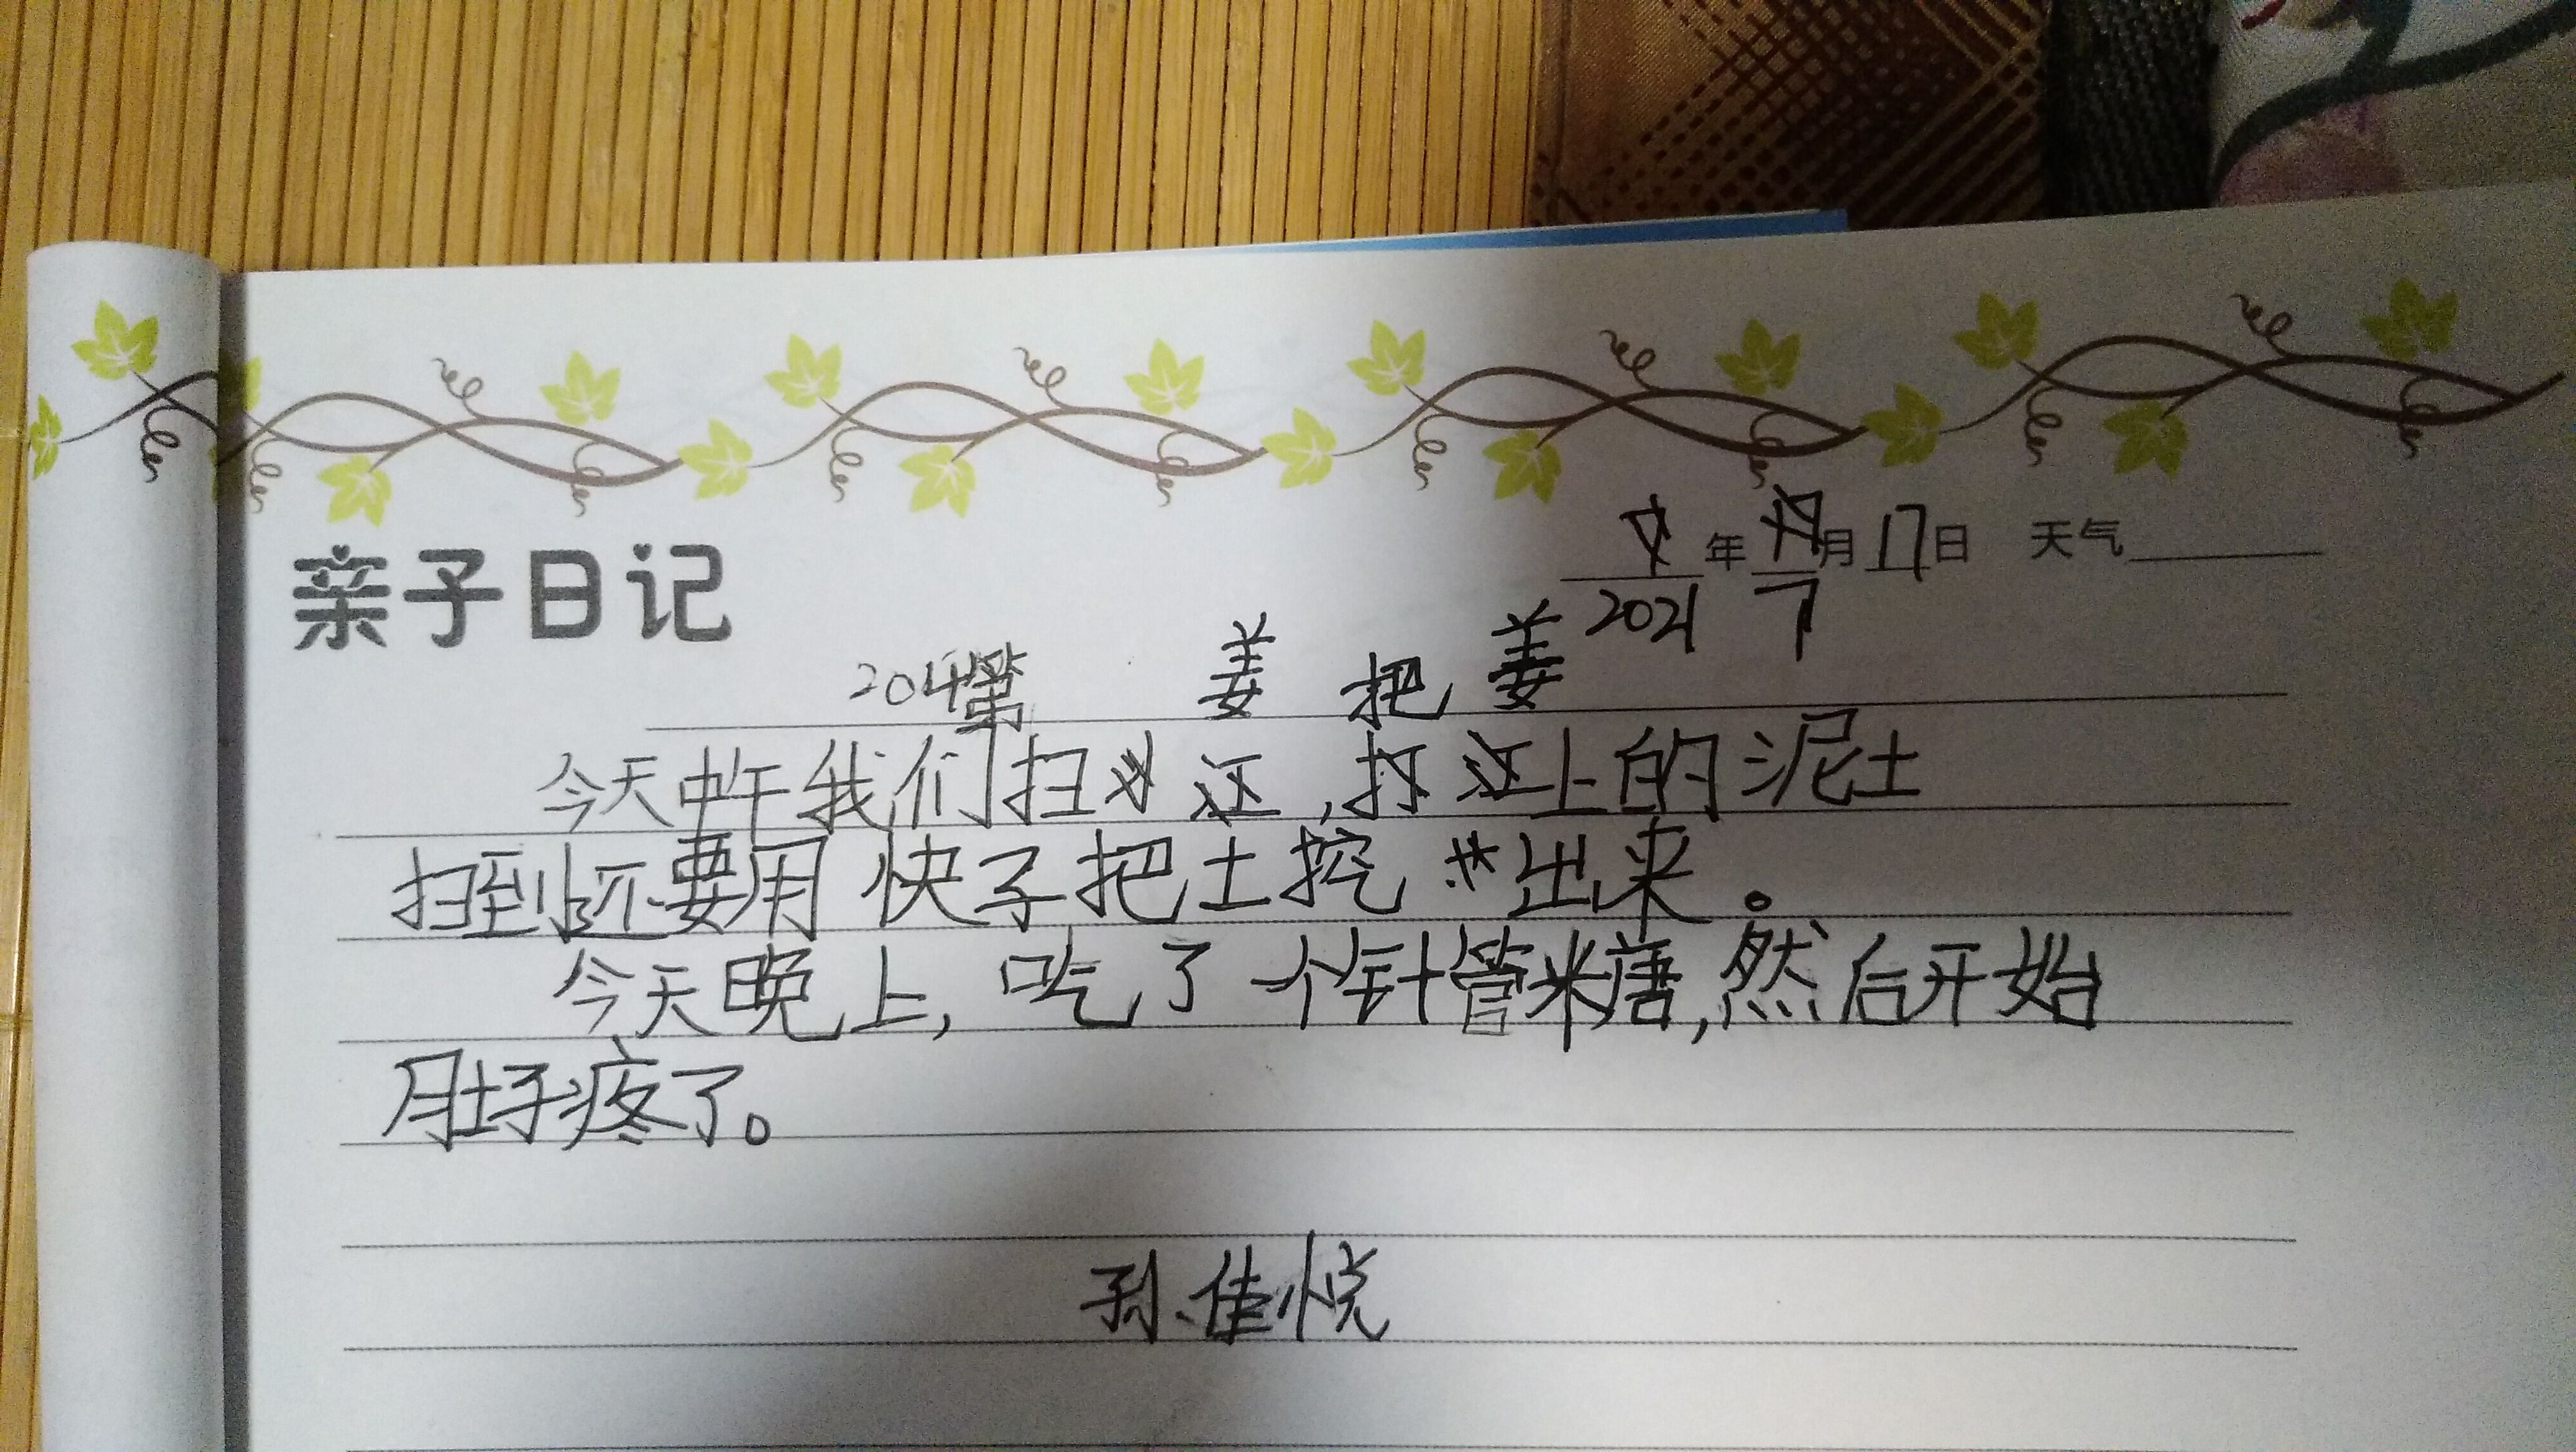 亲子日记
年 月 17日 天气
2021 7
204第 姜 把 姜
今天中午我们扫 , 上的泥土
扫到还要用快子把土挖出来。
今天晚上,吃了一个针管米唐,然后开始
肚子疼了。
孙佳悦